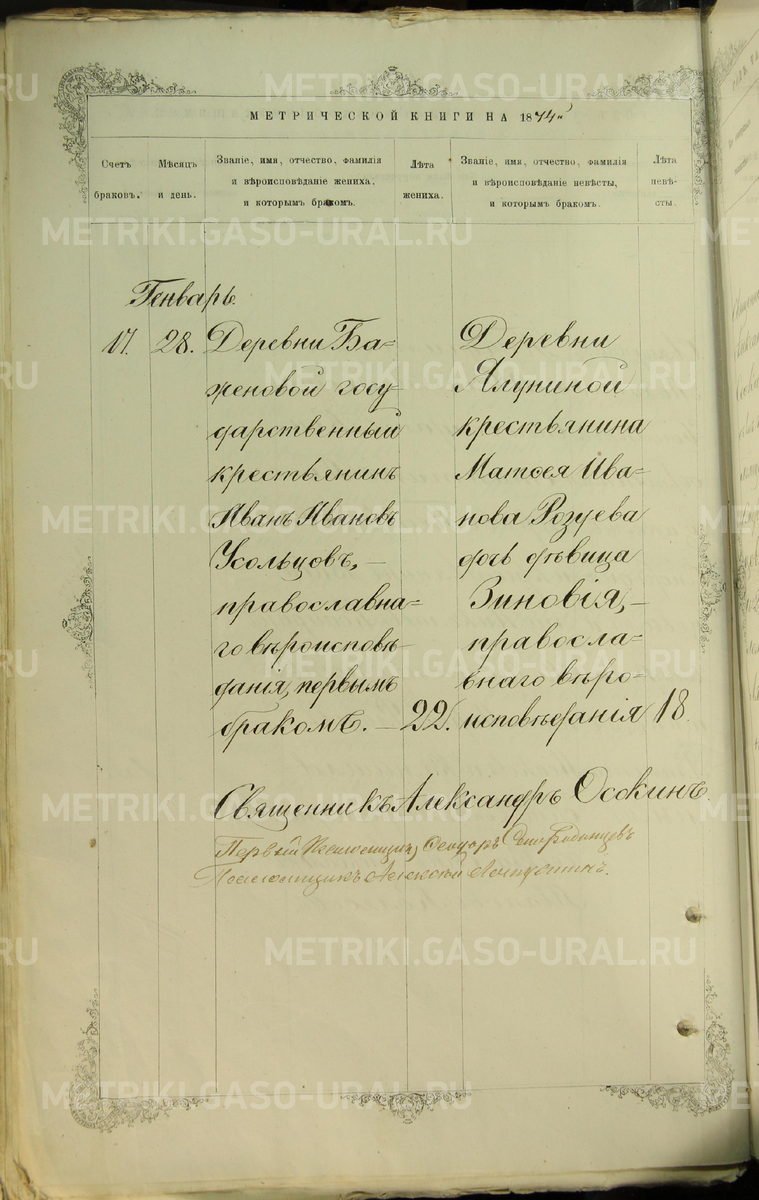 МЕТРИЧЕСКОЙ КНИГИ НА 1874
Счетъ браковъ.
Мѣсяцъ и день.
Званіе, имя, отчество, фамилія
и вѣроисповѣданіе жениха,
и которымъ бракомъ.
Лѣта
жениха.
Званіе, имя, отчество, фамилія
и вѣроисповѣданіе невѣсты,
и которымъ бракомъ.
Лѣта
невѣ-
сты.
Генварь.
17. 28.
Деревни Ба-
женовой госу-
дарственный
крестьянинъ
Иванъ Ивановъ
Усольцовъ, —
православна-
го вѣроисповѣ-
данія, первымъ
бракомъ. — 22.
Деревни
Ялуниной
крестьянина
Матѳея Ива-
нова Розуева
дочь дѣвица
Зиновія, —
правосла-
внаго вѣро-
исповѣданія 18.
Священникъ Александръ Оссикинъ.
Первый
METRIKI.GASO-URAL.RU